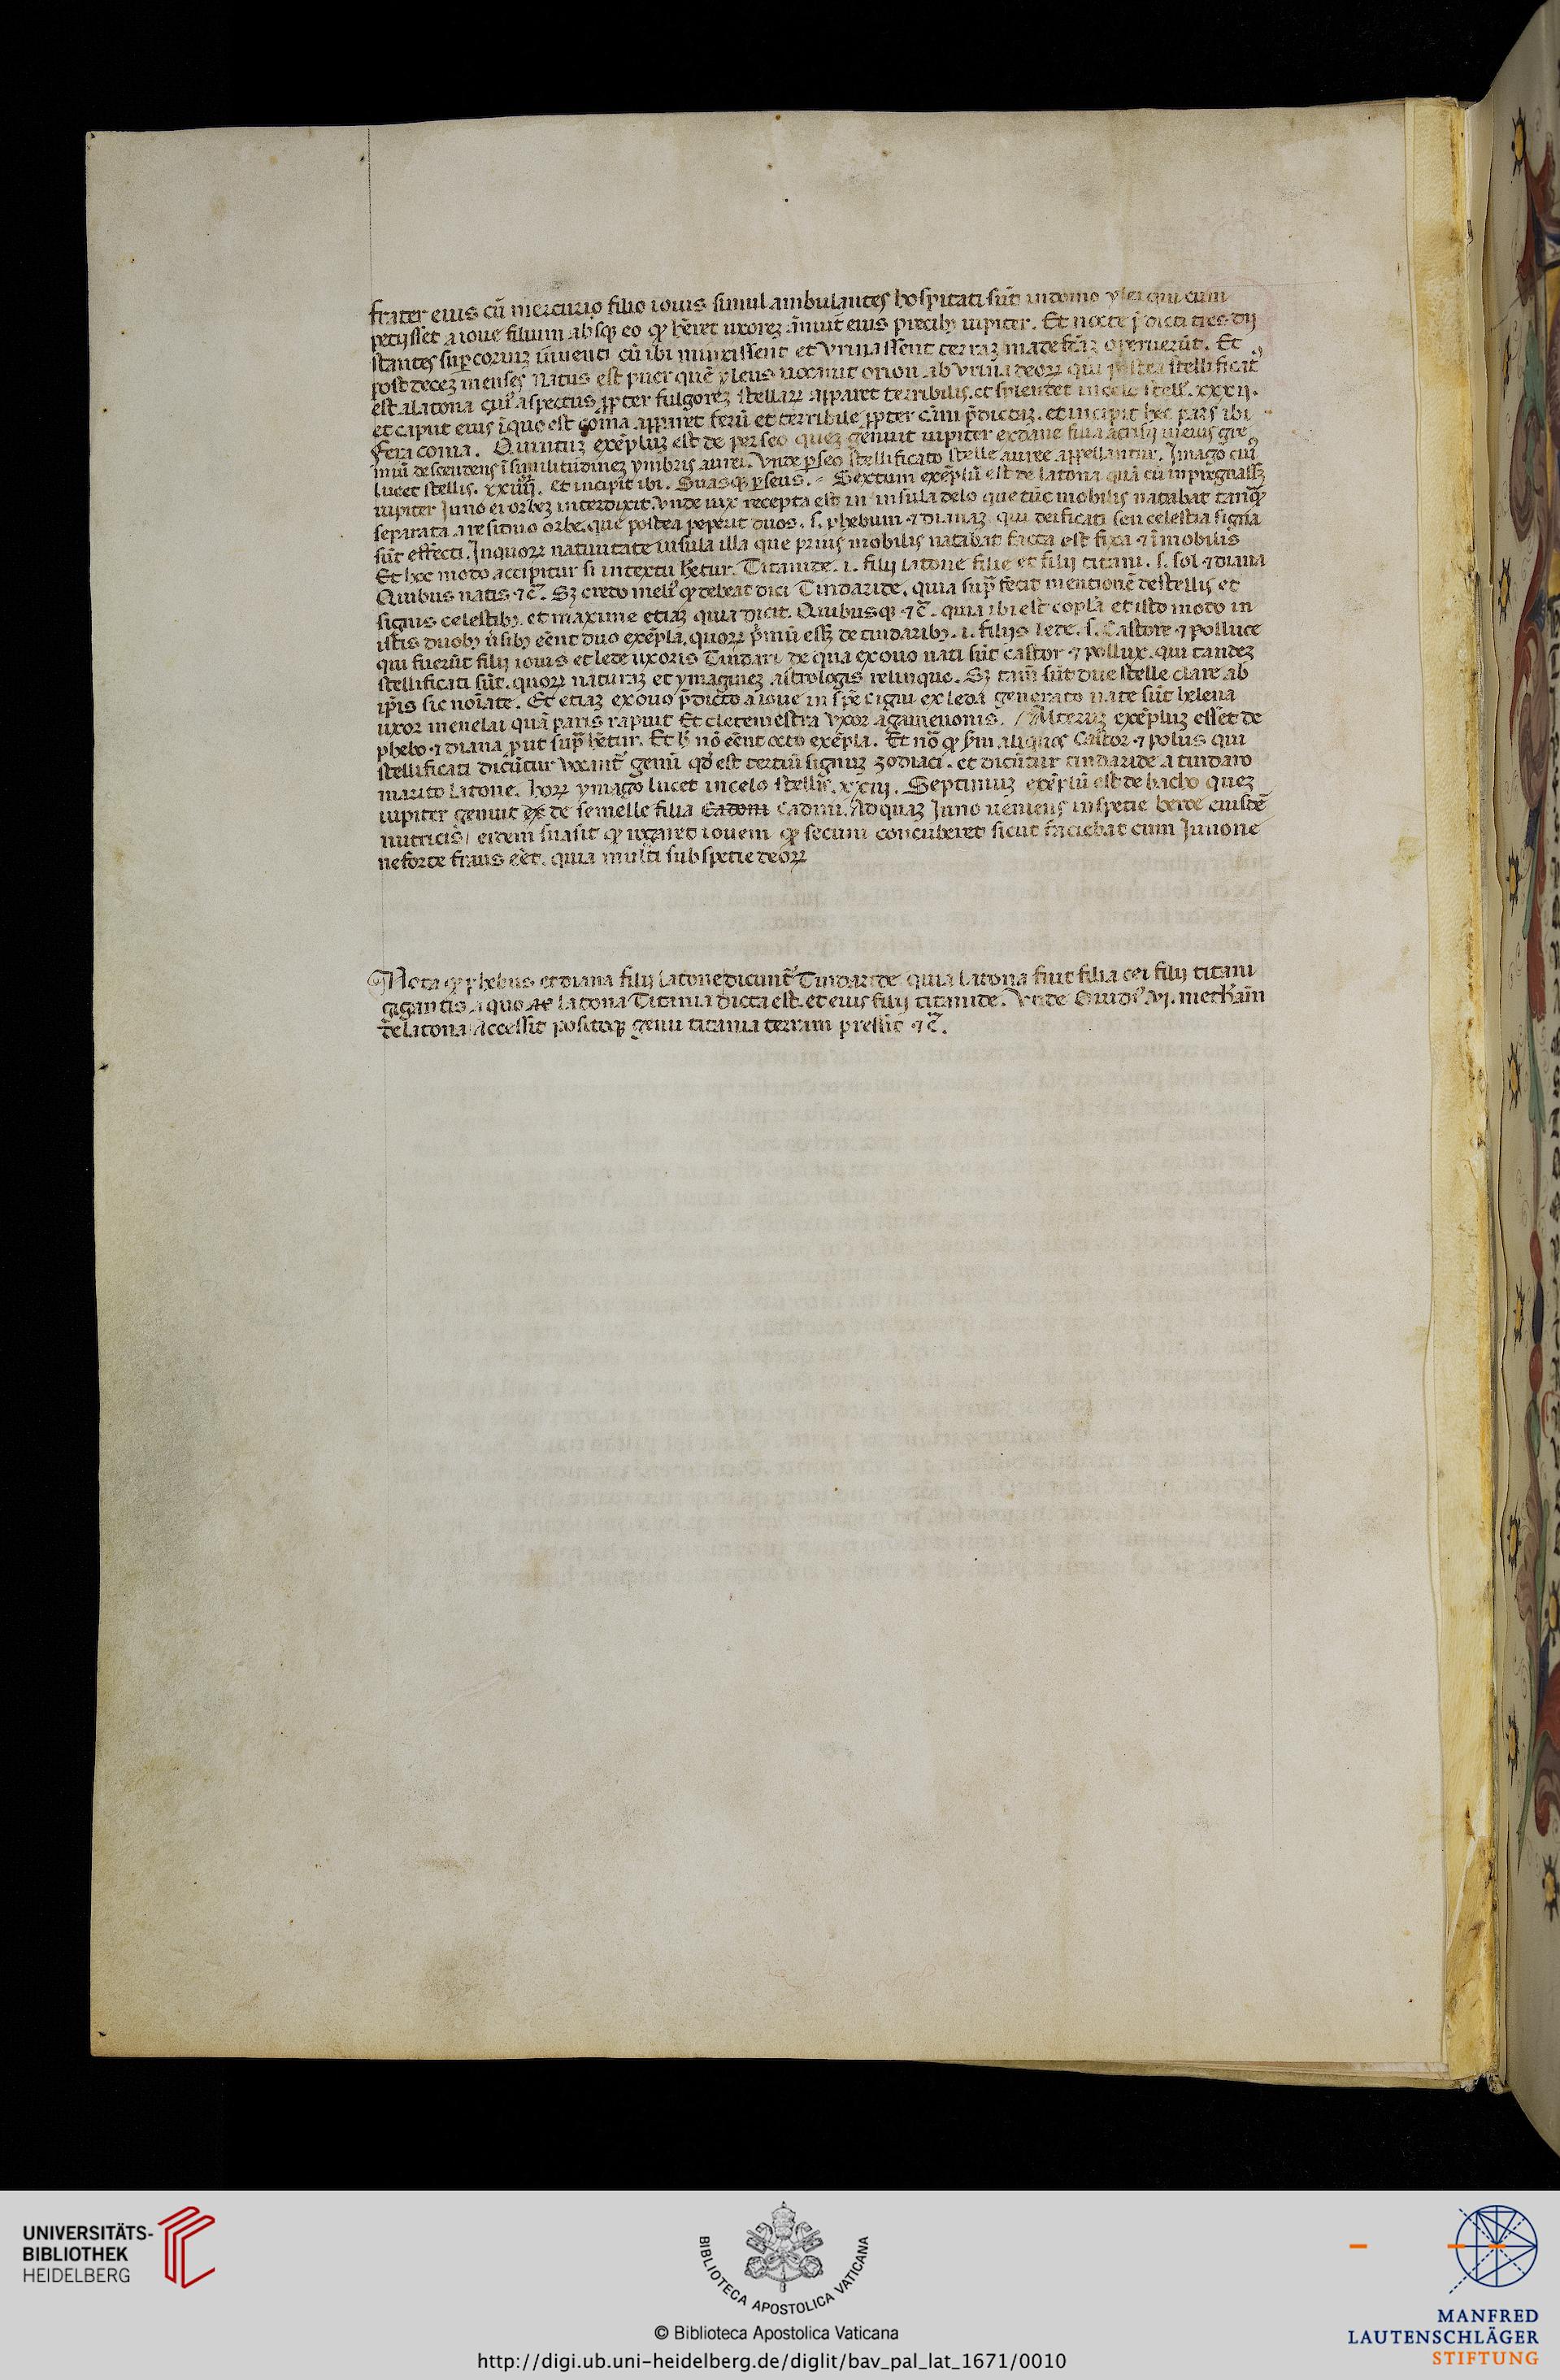 frater eius cũ mercurio filio iouis simul ambulantes hospitati sũt in domo ylei qui cum
petijsset a ioue filium absqꝫ eo ꝙ hẽret uxoreꝫ ãnuit eius precibꝫ iupiter. Et nocte p̃dicti tres dij
stantes sup̱ coriuꝫ iuuenci cũ ibi minxissent et vrinassent terraꝫ madefc̃aꝫ operuerũt. Et
post deceꝫ menses natus est puer quẽ yleus uocauit orion ab vrina deoꝝ qui postea stellificatꝰ
est a latona cuiꝰ aspectus ꝓpter fulgoreꝫ stellaꝝ apparet terribilis. et splendet in celo stellꝭ. xxxij.
et caput eius ĩ quo est coma apparet ferũ et terribile ꝓpter cãm p̃dictaꝫ. et incipit hec pars ibi
fera coma. Quintuꝫ exẽpluꝫ est de perseo queꝫ genuit iupiter ex dane filia acrisij in eius gre
miũ descendens ĩ similitudineꝫ ymbris aurei. Vnde ꝑseo stellificato stelle auree appellantur. Jmago cuiꝰ
lucet stellis. xxiiij. et incipit ibi. Suasqꝫ ꝑseus. Sextum exẽplũ est de latona quã cũ inpregnasseꝫ
iupiter Juno ei orbeꝫ interdixit. vnde uix recepta est in insula delo que tũc mobilis natabat tanqꝫ
separata a residuo orbe. que postea peperit duos. s. phebum ⁊ dianaꝫ qui deificati seu celestia signa
sũt effecti. Jn quoꝝ natiuitate insula illa que prius mobilis natabat facta est fixa ⁊ ĩmobilis
Et hoc modo accipitur si in textu hẽtur. Titanide. i. filij latone filie et filij titani. s. sol ⁊ diana
Quibus natis ⁊ c̃. Sꝫ credo meliꝰ ꝙ debeat dici Tindaride. quia sup̃ fecit mentionẽ de stellis et
signis celestibꝫ. et maxime etiaꝫ quia dicit. Quibusqꝫ ⁊ c̃. quia ibi est copla et isto modo in
istis duobꝫ ũsibꝫ eẽnt duo exẽpla. quoꝝ p̃mũ esseꝫ de tindaribꝫ. i. filijs lede. s. Castore ⁊ polluce
qui fuerũt filij iouis et lede uxoris Tindari de qua ex ouo nati sũt castor ⁊ pollux. qui tandeꝫ
stellificati sũt. quoꝝ naturaꝫ et ymagineꝫ astrologis relinquo. Sꝫ tam̃ sũt due stelle clare ab
ip̃is sic noĩate. Et etiaꝫ ex ouo p̃dicto a ioue in sp̃e cigni ex leda generato nate sũt helena
uxor menelai quã paris rapuit Et cletemestra vxor agamenonis. / Alteruꝫ exẽpluꝫ esset de
phebo ⁊ diana ꝓut sup̃ hẽtur. Et h̃ nõ eẽnt octo exẽpla. Et nõ ꝙ s̃m aliquos Castor ⁊ polus qui
stellificati dicũtur vocant̃ geminĩ qd̃ est tertiũ signuꝫ zodiaci. et dicũtur tindaride a tindaro
marito latone. hoꝝ ymago lucet in celo stellis. xxiij. Septimuꝫ exẽplũ est de bacho queꝫ
iupiter genuit ex de semelle filia Cadom Cadmi. Ad quaꝫ Juno ueniens in specie beroe eiusdẽ
nutricis / eidem suasit ꝙ rogaret iouem ꝙ secum concuberet sicut faciebat cum Junone
ne forte fraus eẽt. quia multi sub specie deoꝝ
Nota ꝙ phebus et diana filij latone dicunt̃ Tindaride quia latona fuit filia cei filij titani
gigantis a quo ae latona Titania dicta est. et eius filij titanide. Vnde Ouidiꝰ. vj. metham̃
de latona Accessit positoqꝫ genu titania terram pressit ⁊ c̃.
UNIVERSITÄTS-
BIBLIOTHEK
HEIDELBERG
BIBLIOTECA APOSTOLICA VATICANA
© Biblioteca Apostolica Vaticana
http://digi.ub.uni-heidelberg.de/diglit/bav_pal_lat_1671/0010
MANFRED
LAUTENSCHLÄGER
STIFTUNG